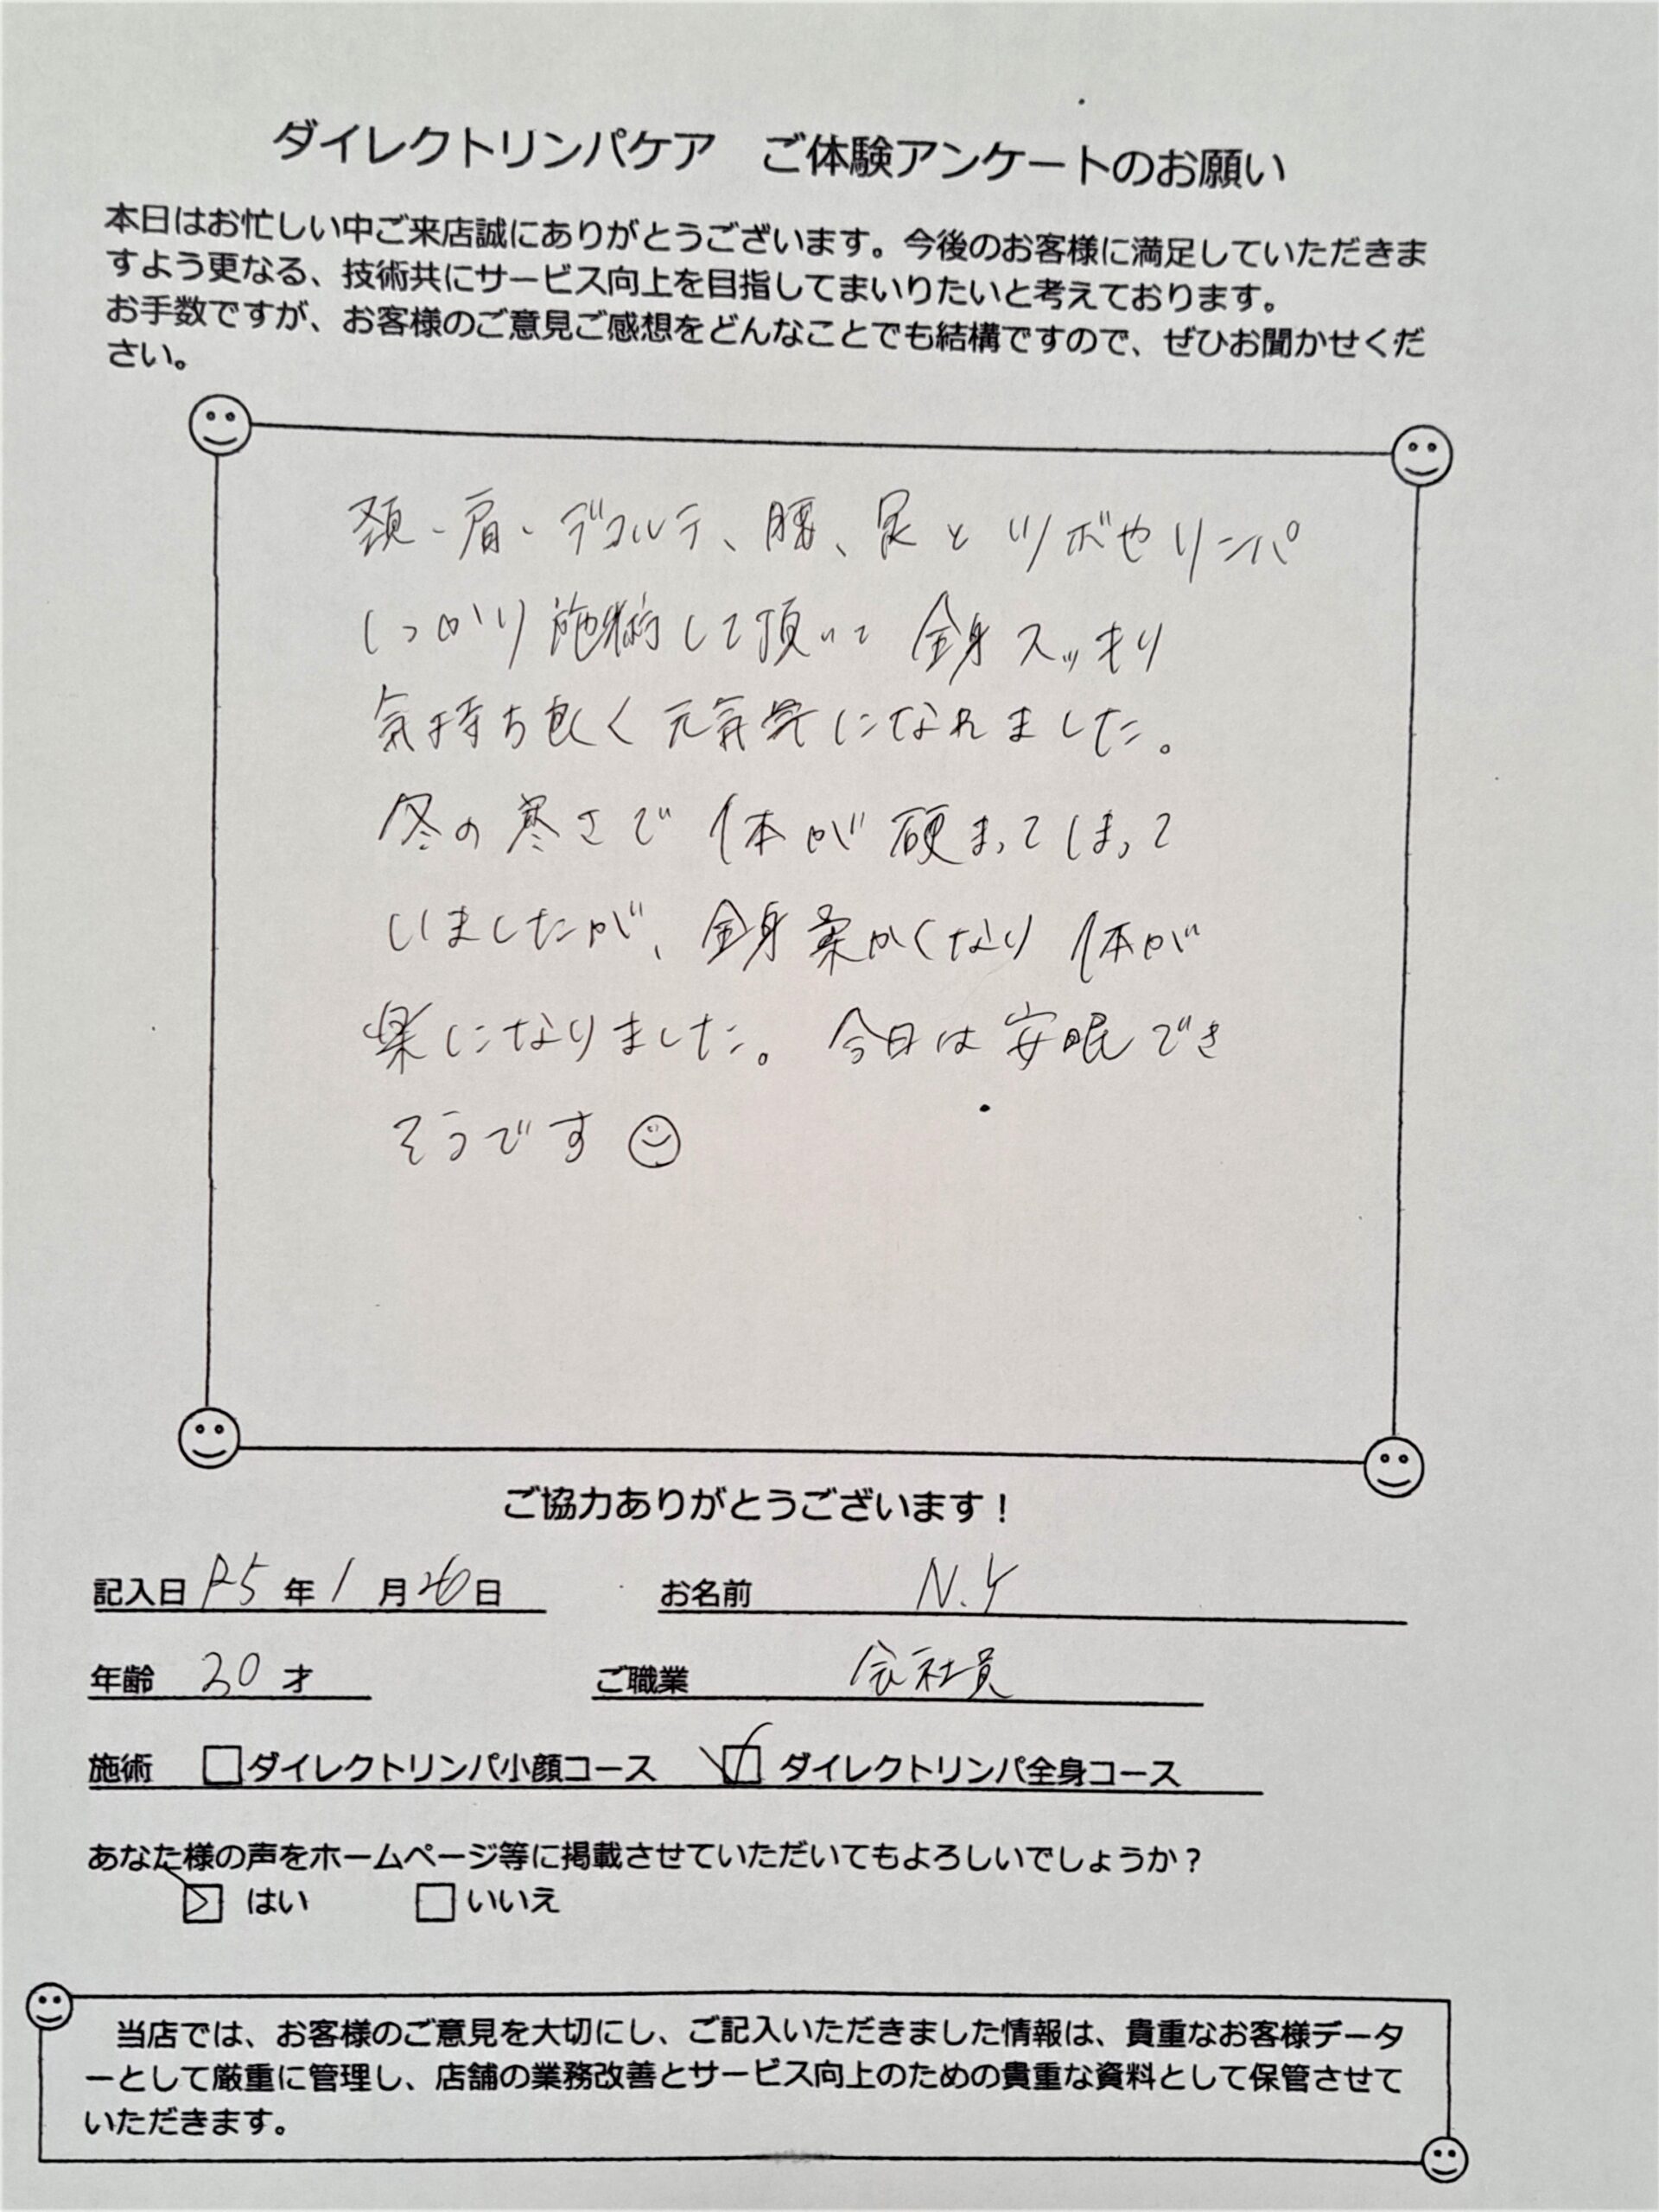 ダイレクトリンパケア　ご体験アンケートのお願い
本日はお忙しい中ご来店誠にありがとうございます。今後のお客様に満足していただきま
すよう更なる、技術共にサービス向上を目指してまいりたいと考えております。
お手数ですが、お客様のご意見ご感想をどんなことでも結構ですので、ぜひお聞かせくだ
さい。
頚、肩、デコルテ、腰、尻とツボやリンパ
しっかり施術して頂いて 全身スッキリ
気持ち良く元気になれました。
冬の寒さで 体が硬まってしまって
いましたが、全身柔かくなり 体が
楽になりました。今日は安眠でき
そうです
ご協力ありがとうございます！
記入日 R5 年 1 月 日 お名前 N.Y
年齢 30 才 ご職業 会社員
施術 □ダイレクトリンパ小顔コース ☑ダイレクトリンパ全身コース
あなた様の声をホームページ等に掲載させていただいてもよろしいでしょうか？
☑ はい □いいえ
当店では、お客様のご意見を大切にし、ご記入いただきました情報は、貴重なお客様データ
ーとして厳重に管理し、店舗の業務改善とサービス向上のための貴重な資料として保管させて
いただきます。